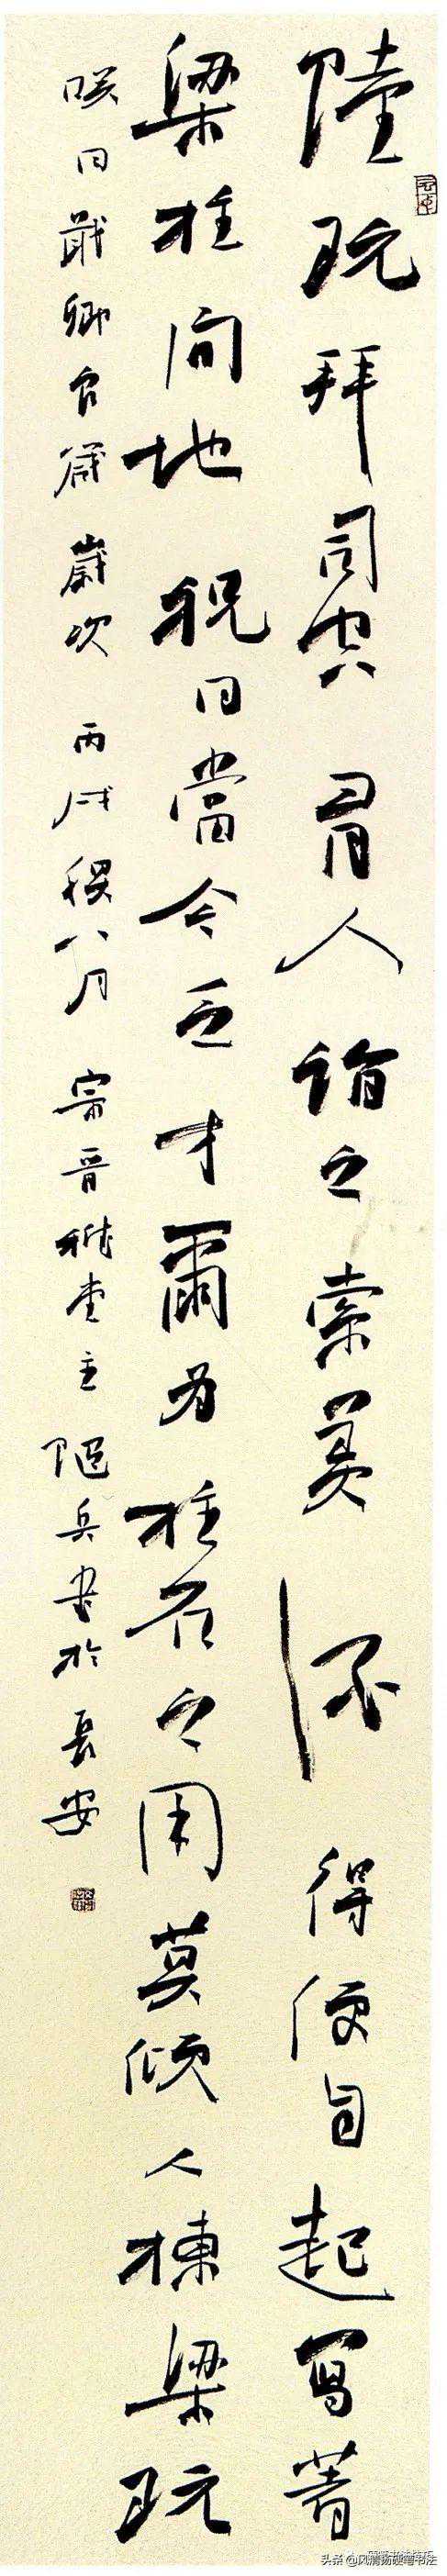 陸玩拜司空有人詣之索美酒得便自起寫著
梁柱間地祝曰當今乏才爾為柱石之用莫傾人棟梁玩
咲曰戢卿良箴歲次丙戌八月宗晋堂主兵書於長安
头条 @风清扬硬笔书法